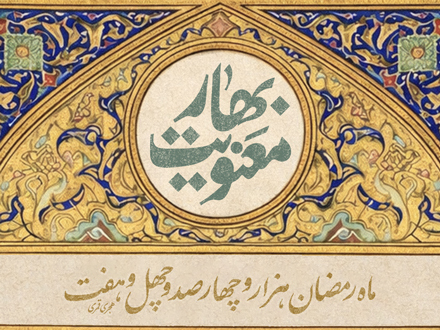 بهار
معنویت
ماه رمضان هزار و چهارصد و چهل و هفت
هجری قمری